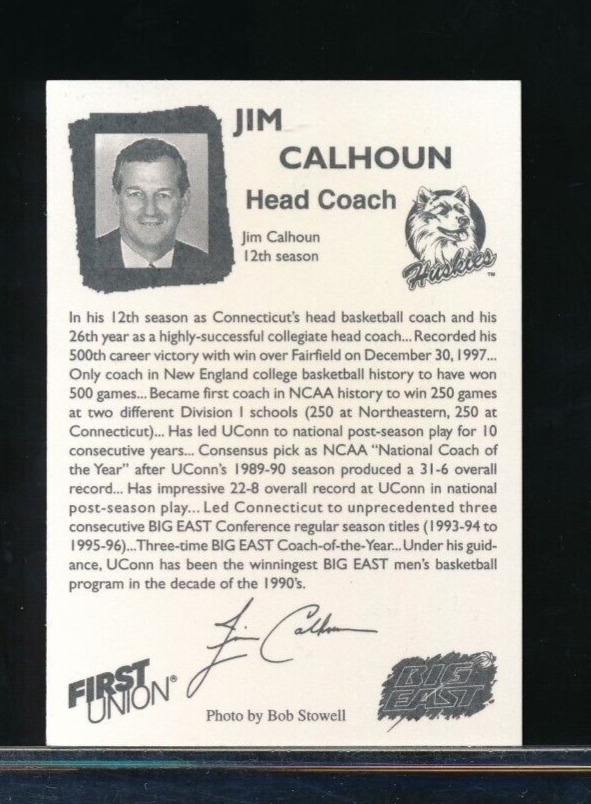 JIM
CALHOUN
Head Coach
Jim Calhoun
12th season
Huskies
TM
In his 12th season as Connecticut's head basketball coach and his
26th year as a highly-successful collegiate head coach... Recorded his
500th career victory with win over Fairfield on December 30, 1997...
Only coach in New England college basketball history to have won
500 games... Became first coach in NCAA history to win 250 games
at two different Division I schools (250 at Northeastern, 250 at
Connecticut)... Has led UConn to national post-season play for 10
consecutive years... Consensus pick as NCAA "National Coach of
the Year" after UConn's 1989-90 season produced a 31-6 overall
record... Has impressive 22-8 overall record at UConn in national
post-season play... Led Connecticut to unprecedented three
consecutive BIG EAST Conference regular season titles (1993-94 to
1995-96)...Three-time BIG EAST Coach-of-the-Year... Under his guid-
ance, UConn has been the winningest BIG EAST men's basketball
program in the decade of the 1990's.
Jim Calhoun
FIRST
UNION®
Photo by Bob Stowell
BIG
EAST